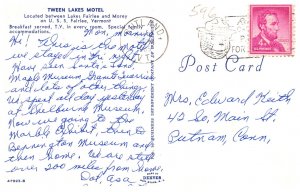 TWEEN LAKES MOTEL
Located between Lakes Fairlee and Morey
on U. S. 5, Fairlee, Vermont
Breakfast served. T.V. in every room. Special family
accommodations.
Mon, morning
Hi! This is the motel
we stayed in the night.
Have seen Santa's Land,
Maple Museum, Granite quarries
and lots of other things.
We spent all day yesterday
at Shelburne Museum.
Now going to the
Marble Exhibit, then to
Bennington Museum and
then home. We are still
over 200 miles from home.
Dot, Asa
Post Card
Mrs. Edward Keith
42 So. Main St.
Putnam, Conn.